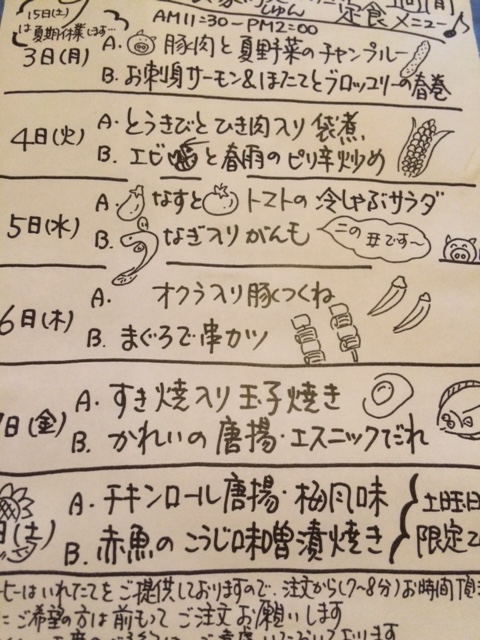 15日(土)
は夏期休業します…
じゅん 定食メニュー♪
AM11=30-PM2=00
3日(月) A. 豚肉と夏野菜のチャンプルー
B. お刺身サーモン&ほたてとブロッコリーの春巻
4日(火) A. とうきびとひき肉入り袋煮
B. エビと春雨のピリ辛炒め
5日(水) A. なすとトマトの冷しゃぶサラダ
B. うなぎ入りがんも 二の丑です〜
6日(木) A. オクラ入り豚つくね
B. まぐろで串カツ
7日(金) A. すき焼入り玉子焼き
B. かれいの唐揚・エスニックだれ
日(土) A. チキンロール唐揚・梅風味
B. 赤魚のこうじ味噌漬焼き
土曜日
限定
ヒーはいれたてをご提供しておりますので、注文から(7〜8分)お時間頂
ご希望の方は前もってご注文お願いします